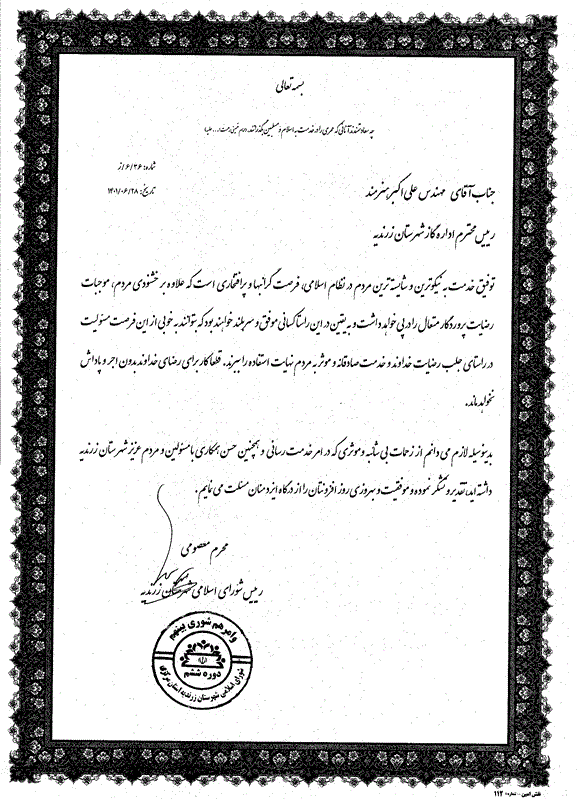 بسمه تعالی
چه سعادتمندند آنانی که عمری را در خدمت به اسلام و مسلمین بگذرانند.
شماره: ۶/۳۶/از
تاریخ: ۱۴۰۱/۰۶/۲۸
جناب آقای مهندس علی اکبر هنرمند
رییس محترم اداره گاز شهرستان زرندیه
توفیق خدمت به نیکوترین و شایسته ترین مردم در نظام اسلامی، فرصت گرانبها و پرافتخاری است که علاوه بر خشنودی مردم، موجبات
رضایت پروردگار متعال را در پی خواهد داشت و به یقین در این راستا کسانی موفق و سربلند خواهند بود که بتوانند به خوبی از این فرصت مسئولیت
در راستای جلب رضایت خداوند و خدمت صادقانه و موثر به مردم نهایت استفاده را ببرند. قطعا کار برای رضای خداوند بدون اجر و پاداش
نخواهد ماند.
بدینوسیله لازم می دانم از زحمات بی شائبه و موثری که در امر خدمت رسانی و همچنین حسن همکاری با مسئولین و مردم عزیز شهرستان زرندیه
داشته اید، تقدیر و تشکر نموده و موفقیت و بهروزی روز افزونتان را از درگاه ایزد منان مسئلت می نمایم.
محرم معصومی
رییس شورای اسلامی شهرستان زرندیه
وامرهم شوری بینهم
دوره ششم
شورای اسلامی شهرستان زرندیه استان مرکزی
نقش آمین - شماره: ۱۱۲